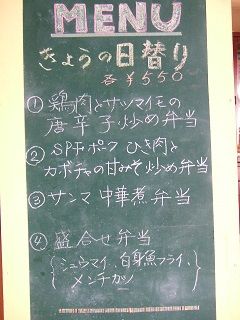 MENU
きょうの日替り
各￥550
① 鶏肉とサツマイモの
唐辛子炒め弁当
② SPFポーク ひき肉と
カボチャの甘みそ炒め弁当
③ サンマ中華煮弁当
④ 盛合せ弁当
(シュウマイ、白身魚フライ、
メンチカツ)